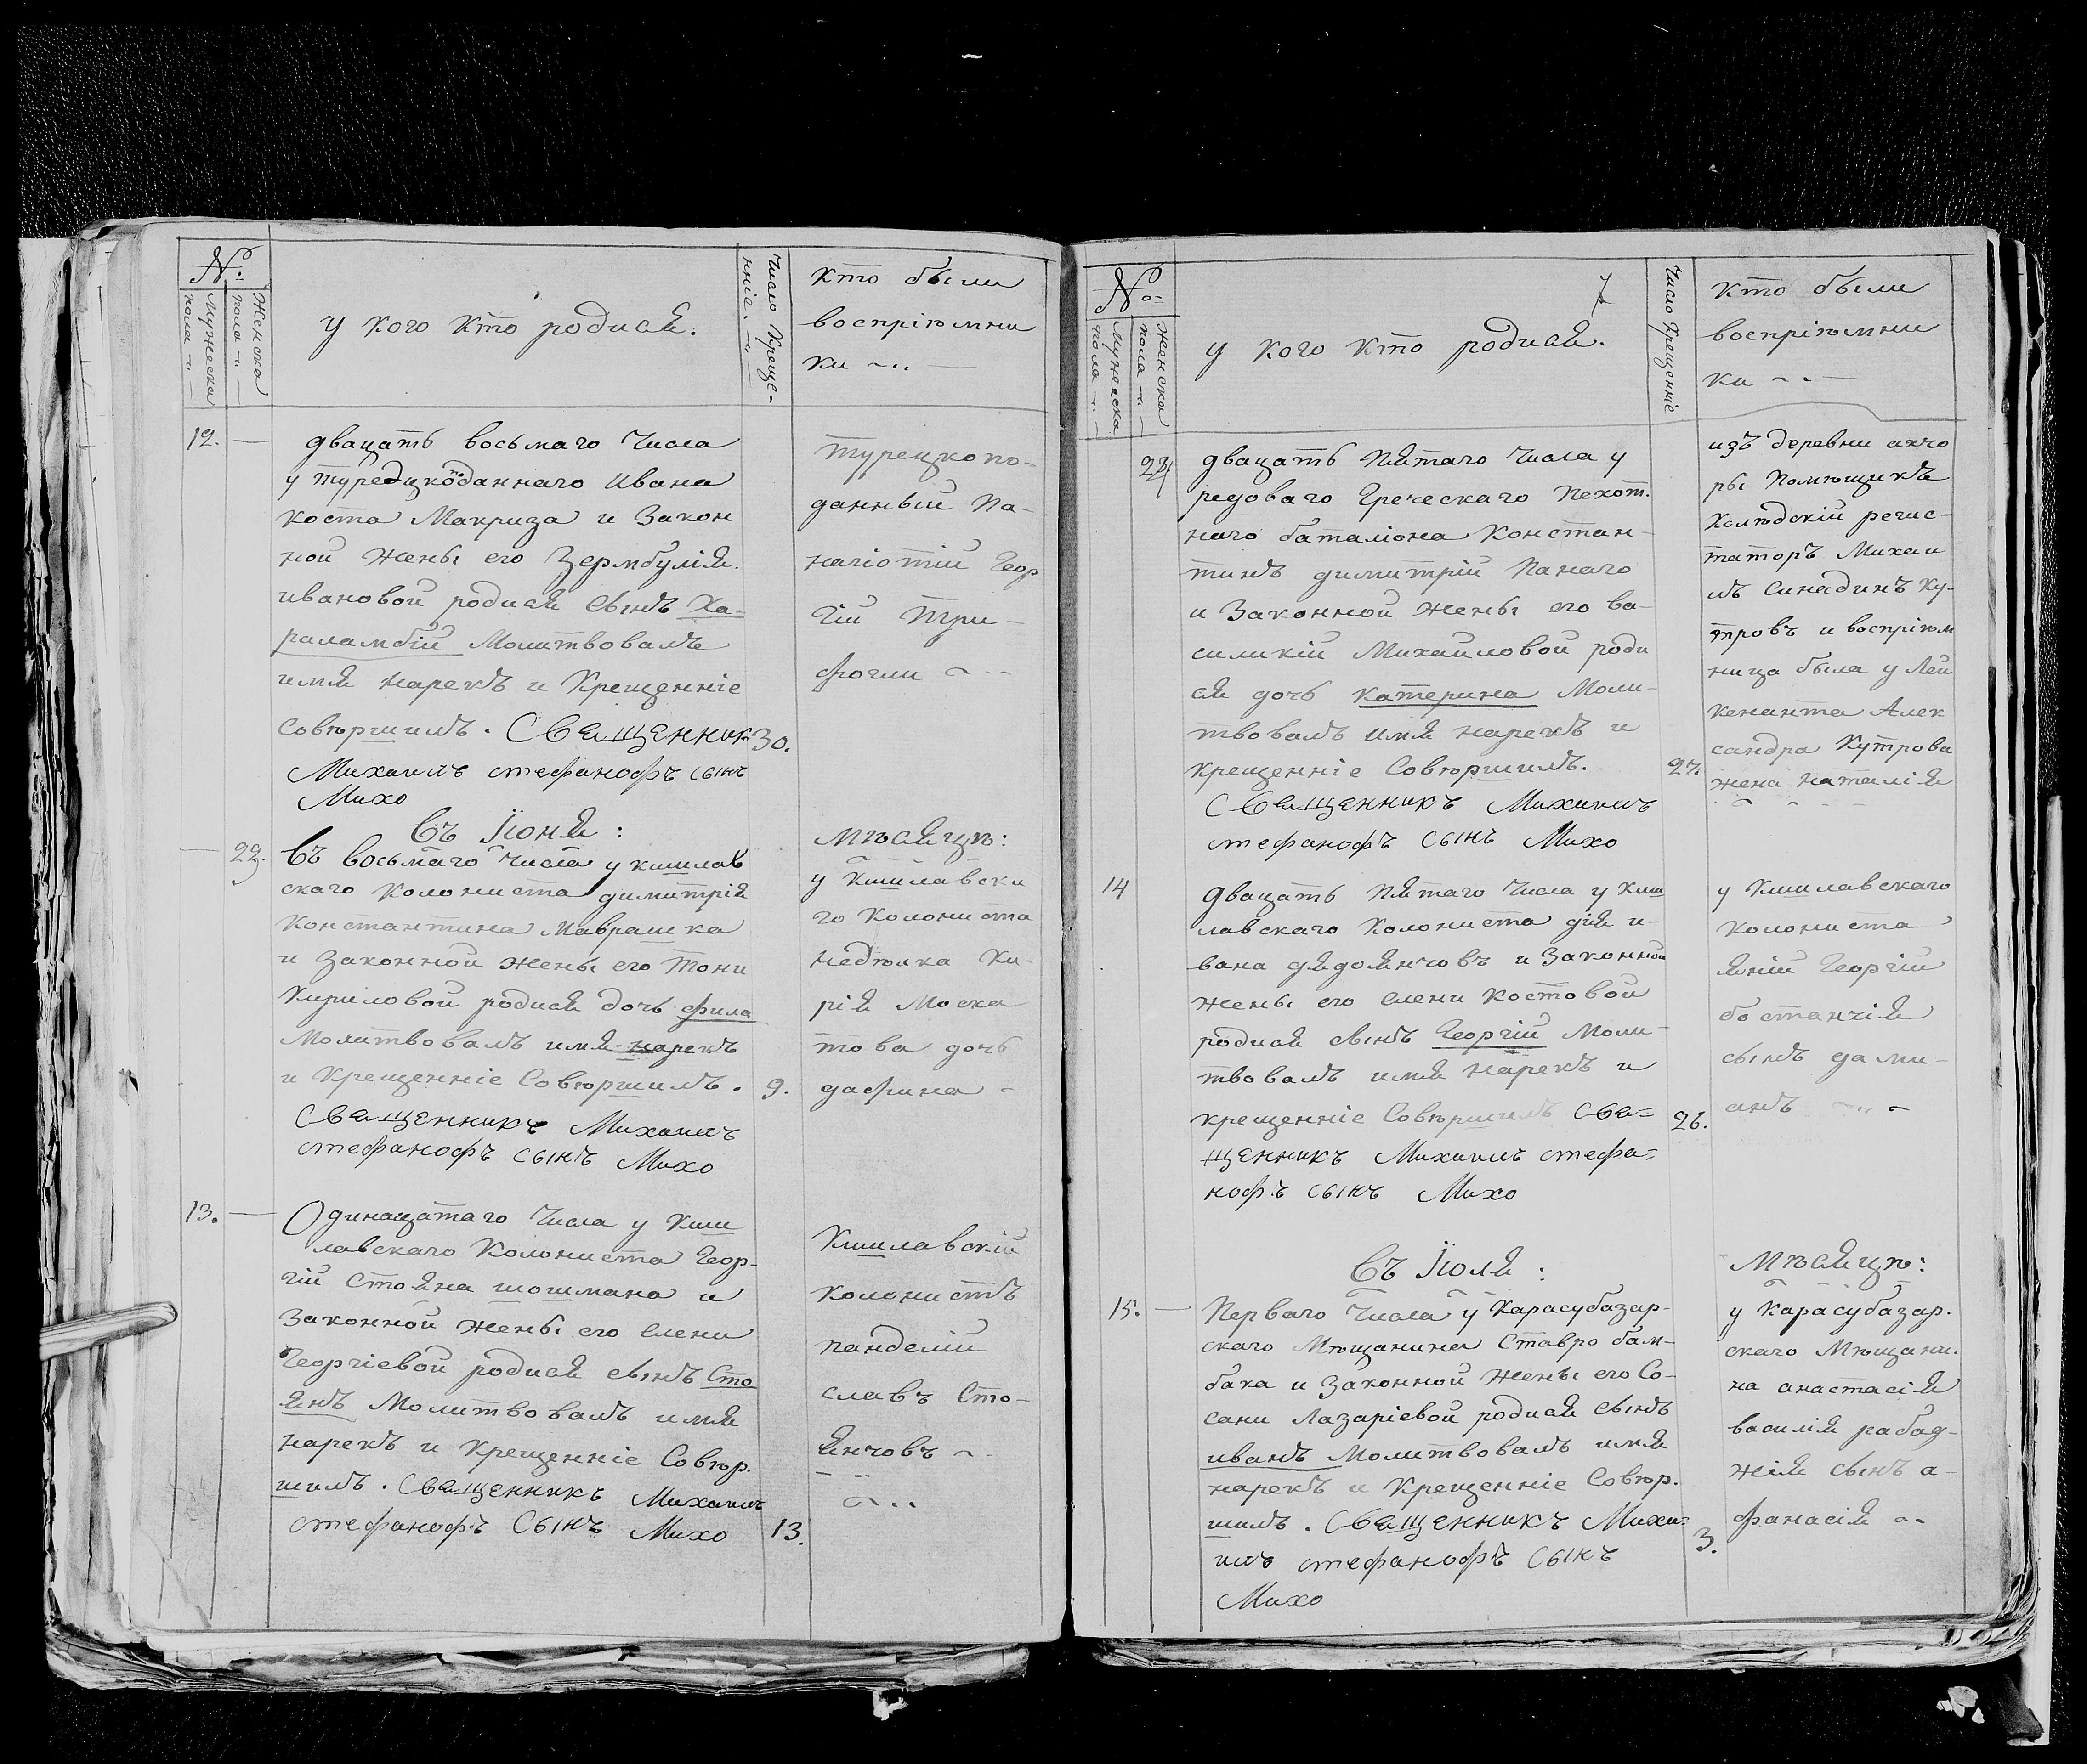 №.
Мужеска
пола
Женска
пола
у кого кто родися.
Число Креще-
нніе.
кто были
воспріюмни
ки
12.
двацать восьмаго Числа
у турецкоподаннаго Ивана
Коста Макриза и Закон
ной жены его Зермбулія
ивановой родися сынъ Ха-
раламбій Молитвовалъ
имя нарекъ и Крещенніе
Совюршилъ. Священник
30.
Михаилъ стефанофъ сынъ
Михо
турецкопо-
данный Па-
нагіотій Геор
гій Три-
фогли
Въ Іюня:
мѣсяцѣ:
22.
въ восьмаго числа у кишлав
скаго колониста димитрія
Константина Маврашка
и Законной жены его Тони
Кириловой родися дочь фила
Молитвовалъ имя нарекъ
и Крещенніе Совюршилъ.
9.
Священникъ Михаилъ
стефанофъ сынъ Михо
у Кишлавска
го Колониста
недюлка Ки-
рія Моска
това дочь
дафина
13.
Одинацатаго Числа у Киш
лавскаго Колониста Геор-
гій Стояна шошмана и
Законной жены его елени
Георгіевой родися сынъ Сто
янъ Молитвовалъ имя
нарекъ и Крещенніе Совюр.
шилъ. Священникъ Михаилъ
стефанофъ Сынъ Михо
13.
Кишлавскій
колонистъ
панделій
славъ Сто-
янчовъ
№
Мужеска
пола
Женска
пола
7
у кого кто родися.
Число Крещенніе
кто были
воспріюмни
ки
23.
двацать пятаго Числа у
редоваго Греческаго Пехот.
наго баталіона Констан-
тинъ димитрій Панаго
и Законной жены его ва-
силикій Михайловой роди
ся дочь катерина Моли-
твовалъ имя нарекъ и
крещенніе Совюршилъ.
27.
Священникъ Михаилъ
стефанофъ сынъ Михо
изъ деревни акчо
ры помющикъ
регис-
таторъ Михаи
лъ Синадинъ Ку-
тровъ и воспріюм
ница была у Леи
кенанта Алек
сандра Кутрова
жена наталія
14
двацать пятаго Числа у Киш
лавскаго Колониста дія и-
вана дядоянчовъ и Законной
жены его елени Костовой
родися сынъ Георгій Моли-
твовалъ имя нарекъ и
крещенніе Совюршилъ Свя=
26.
щенникъ Михаилъ стефа=
нофъ сынъ Михо
у Кишлавскаго
колониста
яній Георгій
бостанчія
сынъ дами-
анъ
Въ Іюля:
Мѣсяцѣ:
15.
Перваго Числа у Карасубазар-
скаго Мющанина Ставро бам-
бака и Законной жены его Со-
сани Лазаріевой родися сынъ
иванъ Молитвовалъ имя
нарекъ и Крещенніе Совюр.
шилъ. Священникъ Миха=
3.
илъ стефанофъ Сынъ
Михо
у Карасубазар.
скаго Мющани.
на анастасія
василія рабад-
жія сынъ а-
фанасія